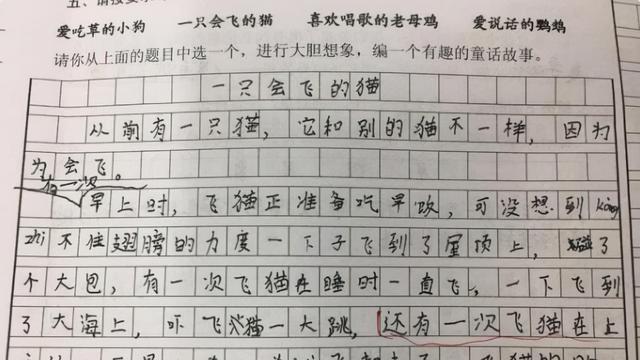 爱吃草的小狗 一只会飞的猫 喜欢唱歌的老母鸡 爱说话的鹦鹉
请你从上面的题目中选一个，进行大胆想象，编一个有趣的童话故事。
一只会飞的猫
从前有一只猫，它和别的猫不一样，因为
为会飞。
有一次
早上时，飞猫正准备吃早饮，可没想到kòng
zhì不住翅膀的力度一下子飞到了屋顶上，碰了
个大包，有一次飞猫在睡时一直飞，一下飞到
了大海上，吓飞猫一大跳，还有一次飞猫在上